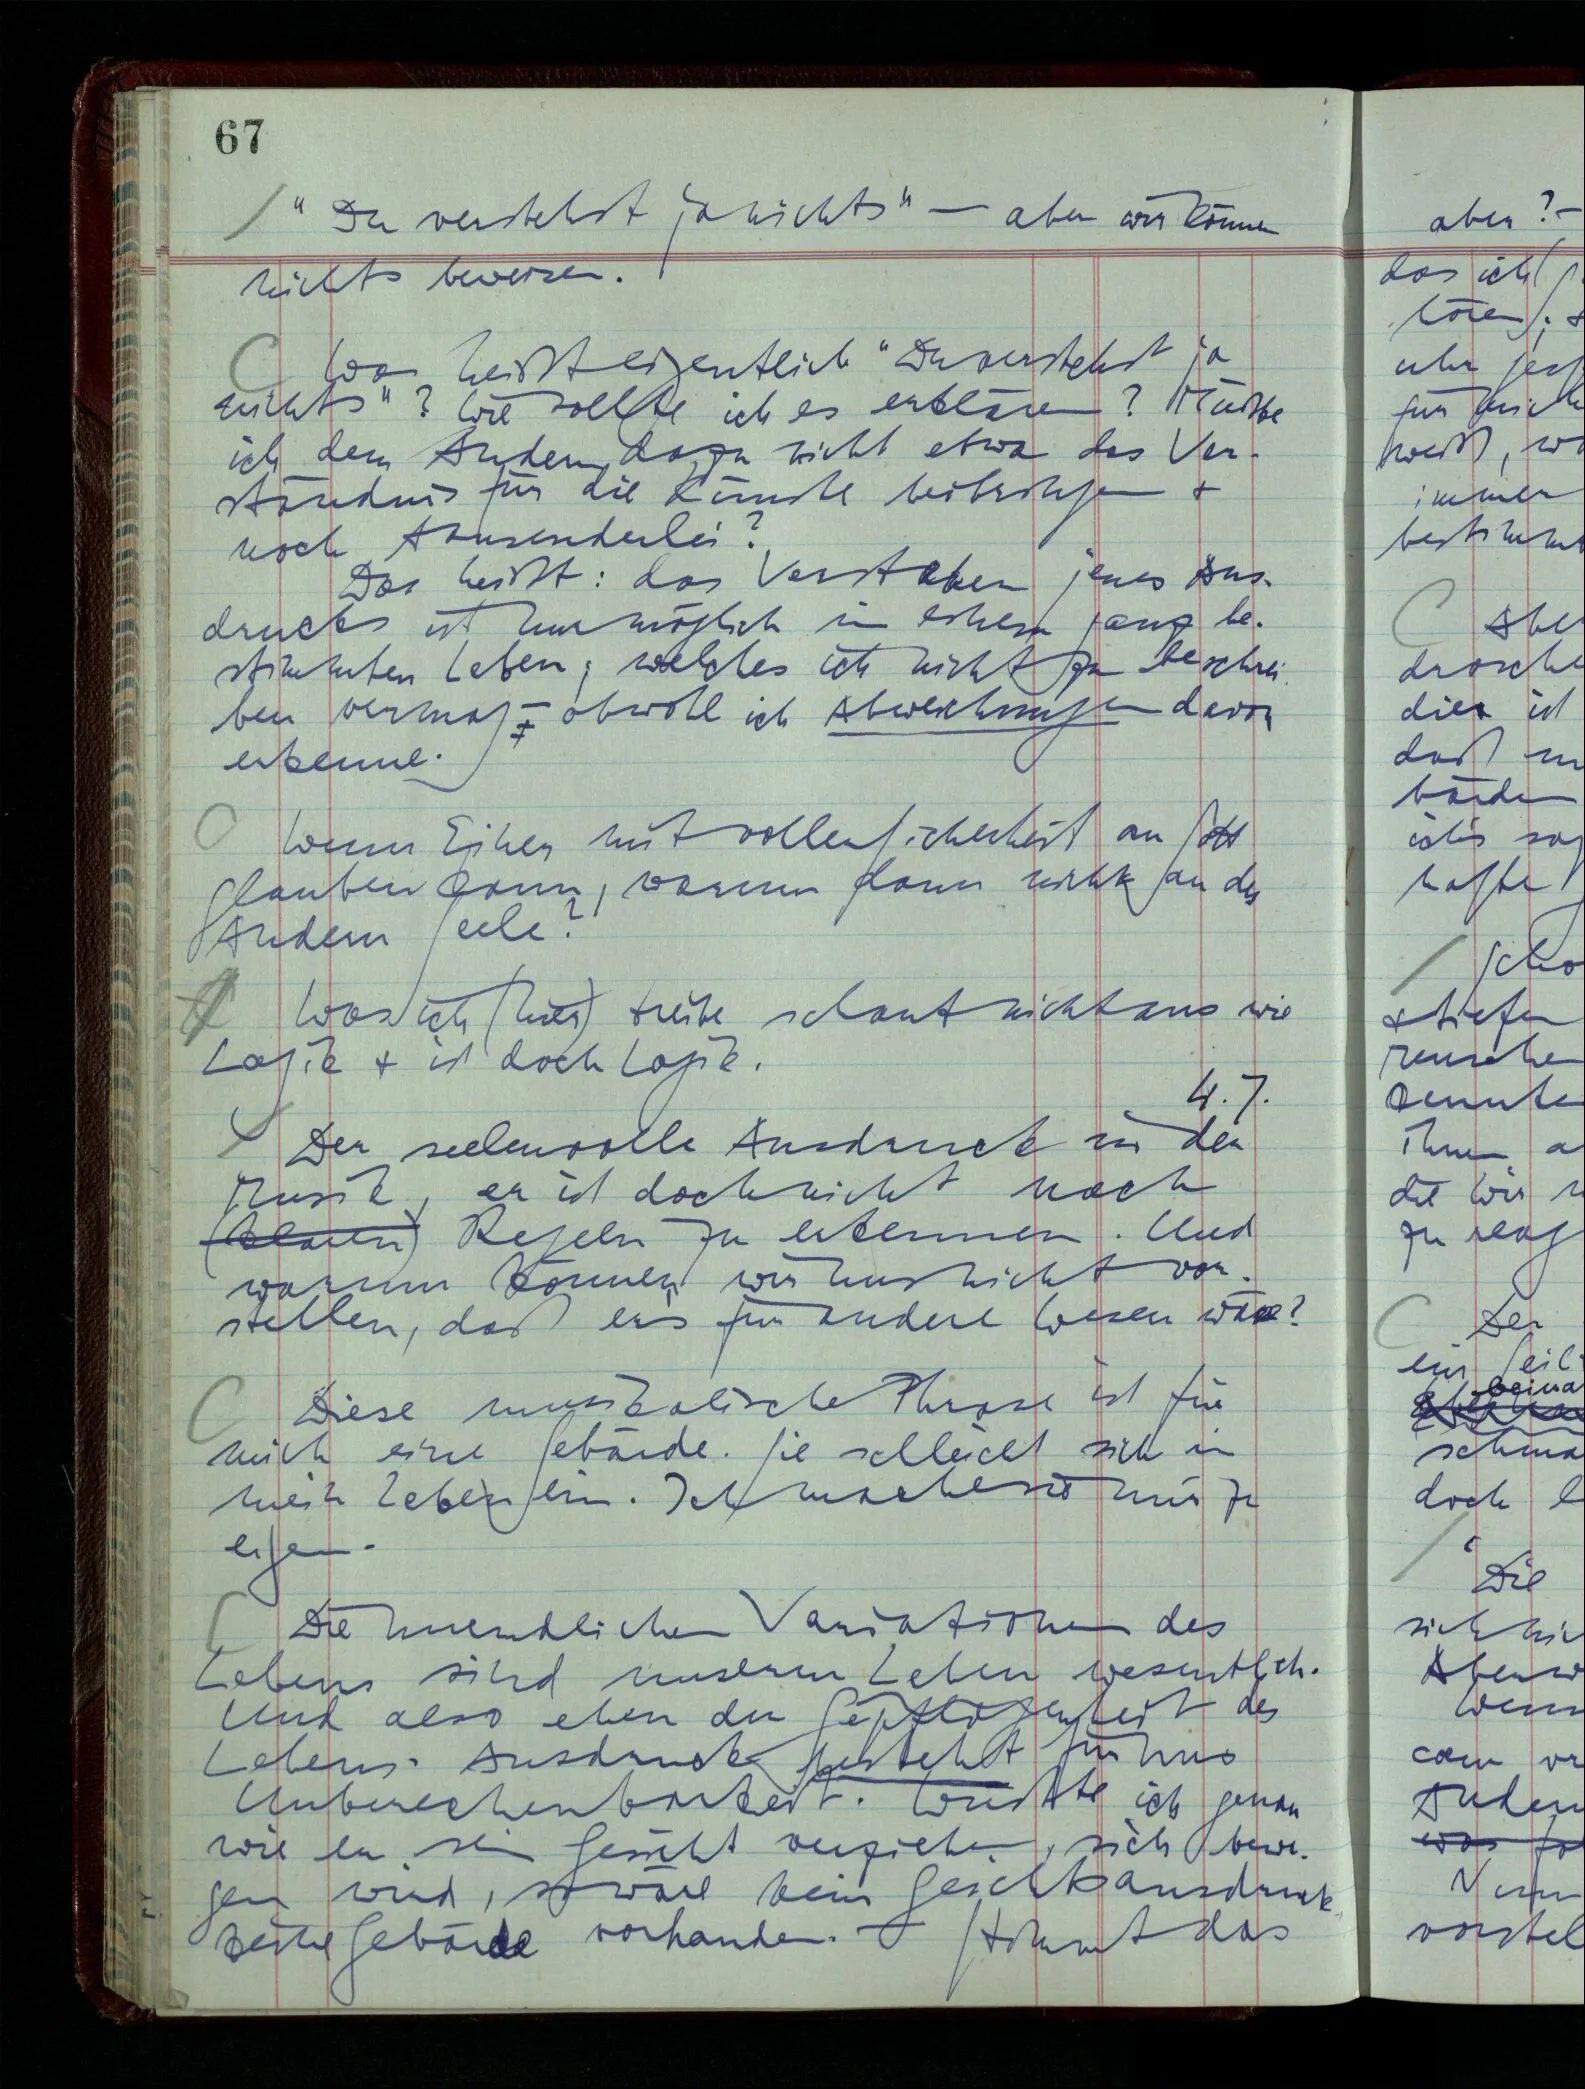 67
/ "Du verstehst ja nichts" — aber wir können
nichts beweisen.
C Was heißt eigentlich "Du verstehst ja
nichts"? Wie sollte ich es erklären? Müßte
ich dem Andern dazu nicht etwa das Ver-
ständnis für die Künste beibringen +
noch Tausenderlei?
Das heißt: das Verstehen jenes Aus-
drucks ist nur möglich in einem ganz be-
stimmten Leben; welches ich nicht zu beschrei-
ben vermag – obwohl ich Abweichungen davon
erkenne.
O Wenn Einer mit voller Sicherheit an Gott
glauben kann, warum dann nicht an der
Andern Seele?
Was ich (hier) treibe schaut nicht aus wie
Logik + ist doch Logik.
4.7.
Der seelenvolle Ausdruck in der
Musik, er ist doch nicht nach
(klaren) Regeln zu erkennen. Und
warum können wir uns nicht vor-
stellen, daß er's für andere Wesen wäre?
C Diese musikalische Phrase ist für
mich eine Gebärde. Sie schleicht sich in
mein Leben ein. Ich mache sie mir zu
eigen.
C Die unendlichen Variationen des
Lebens sind unserm Leben wesentlich.
Und also eben der Gepflogenheit des
Lebens. Ausdruck besteht für uns
Unberechenbarkeit. Wüßte ich genau
wie er sein Gesicht verziehen, sich bewe-
gen wird, so wäre kein Gesichtsausdruck
keine Gebärde vorhanden. – Stimmt das
aber? –
das ich
hören
für mich
weiß,
immer
bestimmt
C Aber
dies ist
daß
ich's
hafte
/
+ tiefen
ihnen
die wir
zu
C Der
ein Teil
beina
doch
/ "Die
sich
Wenn
Andern
was
vorstel